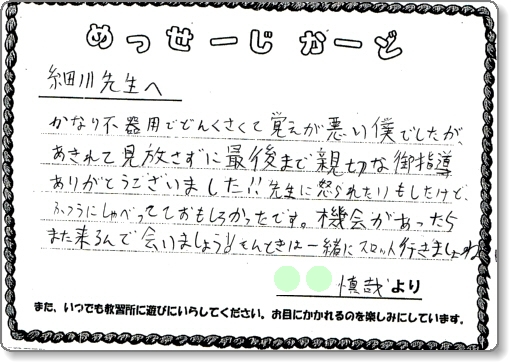 めっせーじかーど
細川先生へ
かなり不器用でどんくさくて覚えが悪い僕でしたが、
あきれて見放さずに最後まで親切な御指導
ありがとうございました!!先生に怒られたりもしたけど、
ふつうにしゃべってておもしろかったです。機会があったら
また来るんで会いましょう!!そんときは一緒にスロット行きましょーね
慎哉より
また、いつでも教習所に遊びにいらしてください。お目にかかれるのを楽しみにしています。